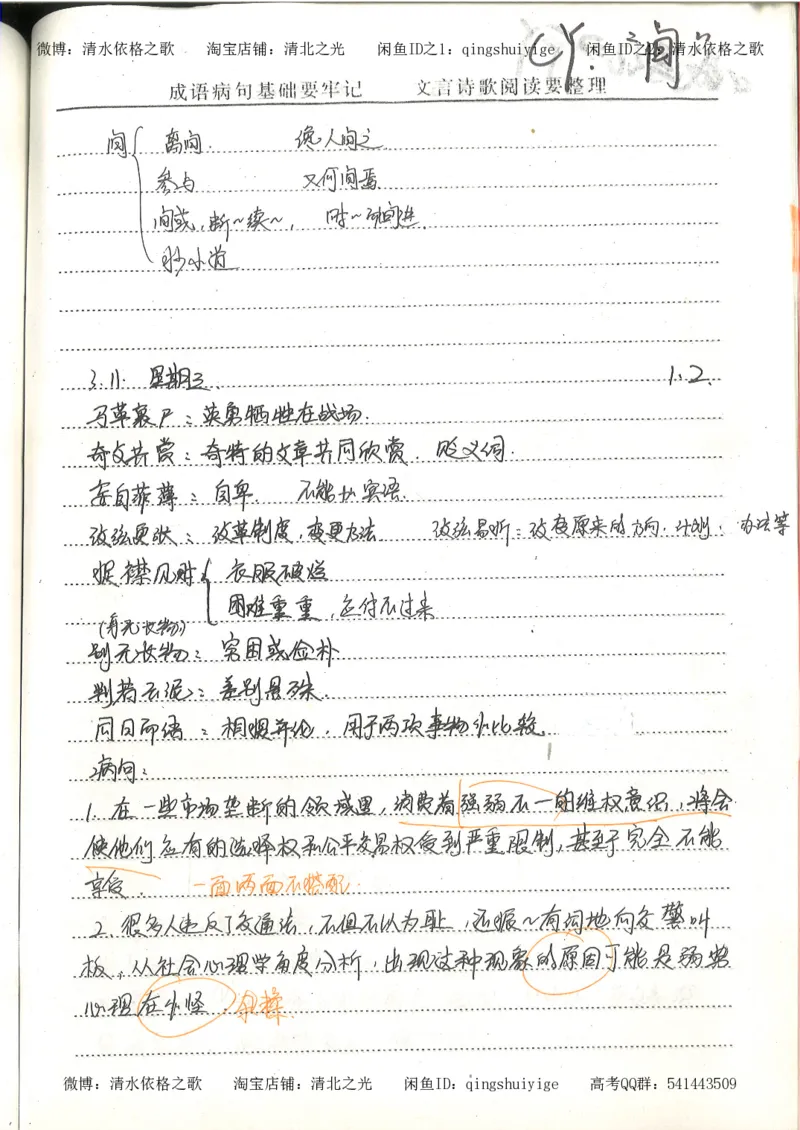 微博：清水依格之歌 淘宝店铺：清北之光 闲鱼ID之1：qingshuiyige 闲鱼ID之2：清水依格之歌
CY：“间”
成语病句基础要牢记 文言诗歌阅读要整理
间 离间 谗人间之
参与 又何间焉
间或，断~续~， 时~而间进
抄小道
3.11. 星期三 1、2.
马革裹尸：英勇牺牲在战场.
奇文共赏：奇特的文章共同欣赏. 贬义词.
妄自菲薄：自卑. 不能加宾语.
改弦更张：改革制度，变更方法 改弦易辙：改变原来的方向、计划、办法等
捉襟见肘 衣服破烂
困难重重，应付不过来
(身无长物)
别无长物：穷困或俭朴
判若云泥：差别悬殊.
同日而语：相提并论，用于两项事物的比较.
病句：
1. 在一些市场垄断的领域里，消费者强弱不一的维权意识，将会
使他们应有的选择权和公平交易权受到严重限制，甚至于完全不能
享受. 一面两面不搭配
2. 很多人违反了交通法，不但不以为耻，还振~有词地向交警叫
板。从社会心理学角度分析，出现这种现象的原因可能是弱势
心理在作怪. 杂糅.
微博：清水依格之歌 淘宝店铺：清北之光 闲鱼ID：qingshuiyige 高考QQ群：541443509